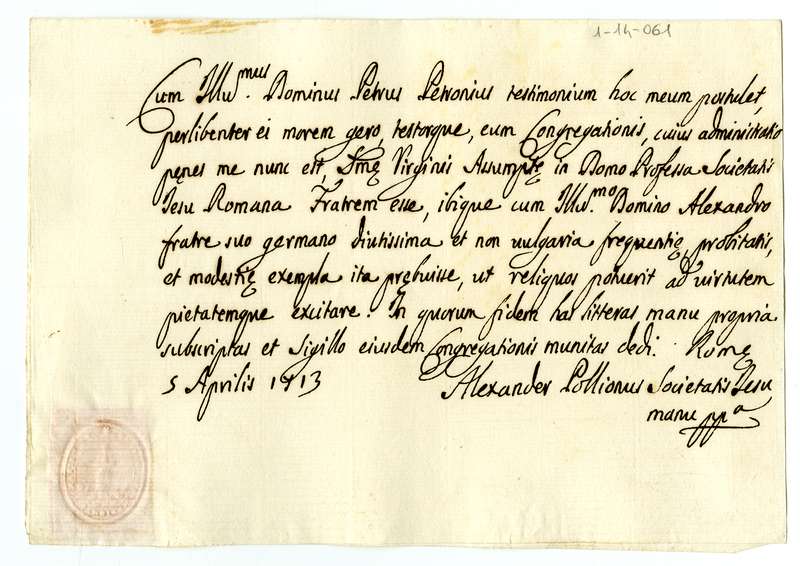 1-14-061
Cum Illu.mus Dominus Petrus Petronius testimonium hoc meum postulet,
perlibenter ei morem gero, testorque, eum Congregationis, cuius administratio
penęs me nunc est, Smę Virginis Assumptę in Domo Professa Societatis
Iesu Romana Fratrem esse, ibique cum Illu.mo Domino Alexandro
fratre suo germano diutissima et non vulgaria frequentię, probitatis,
et modestię exempla ita prębuisse, ut reliquos potuerit ad virtutem
pietatemque excitare. In quorum fidem has litteras manu propria
subscriptas et sigillo eiusdem Congregationis munitas dedi. Romę
5 Aprilis 1713
Alexander Pollionus Societatis Iesu
manu ppa